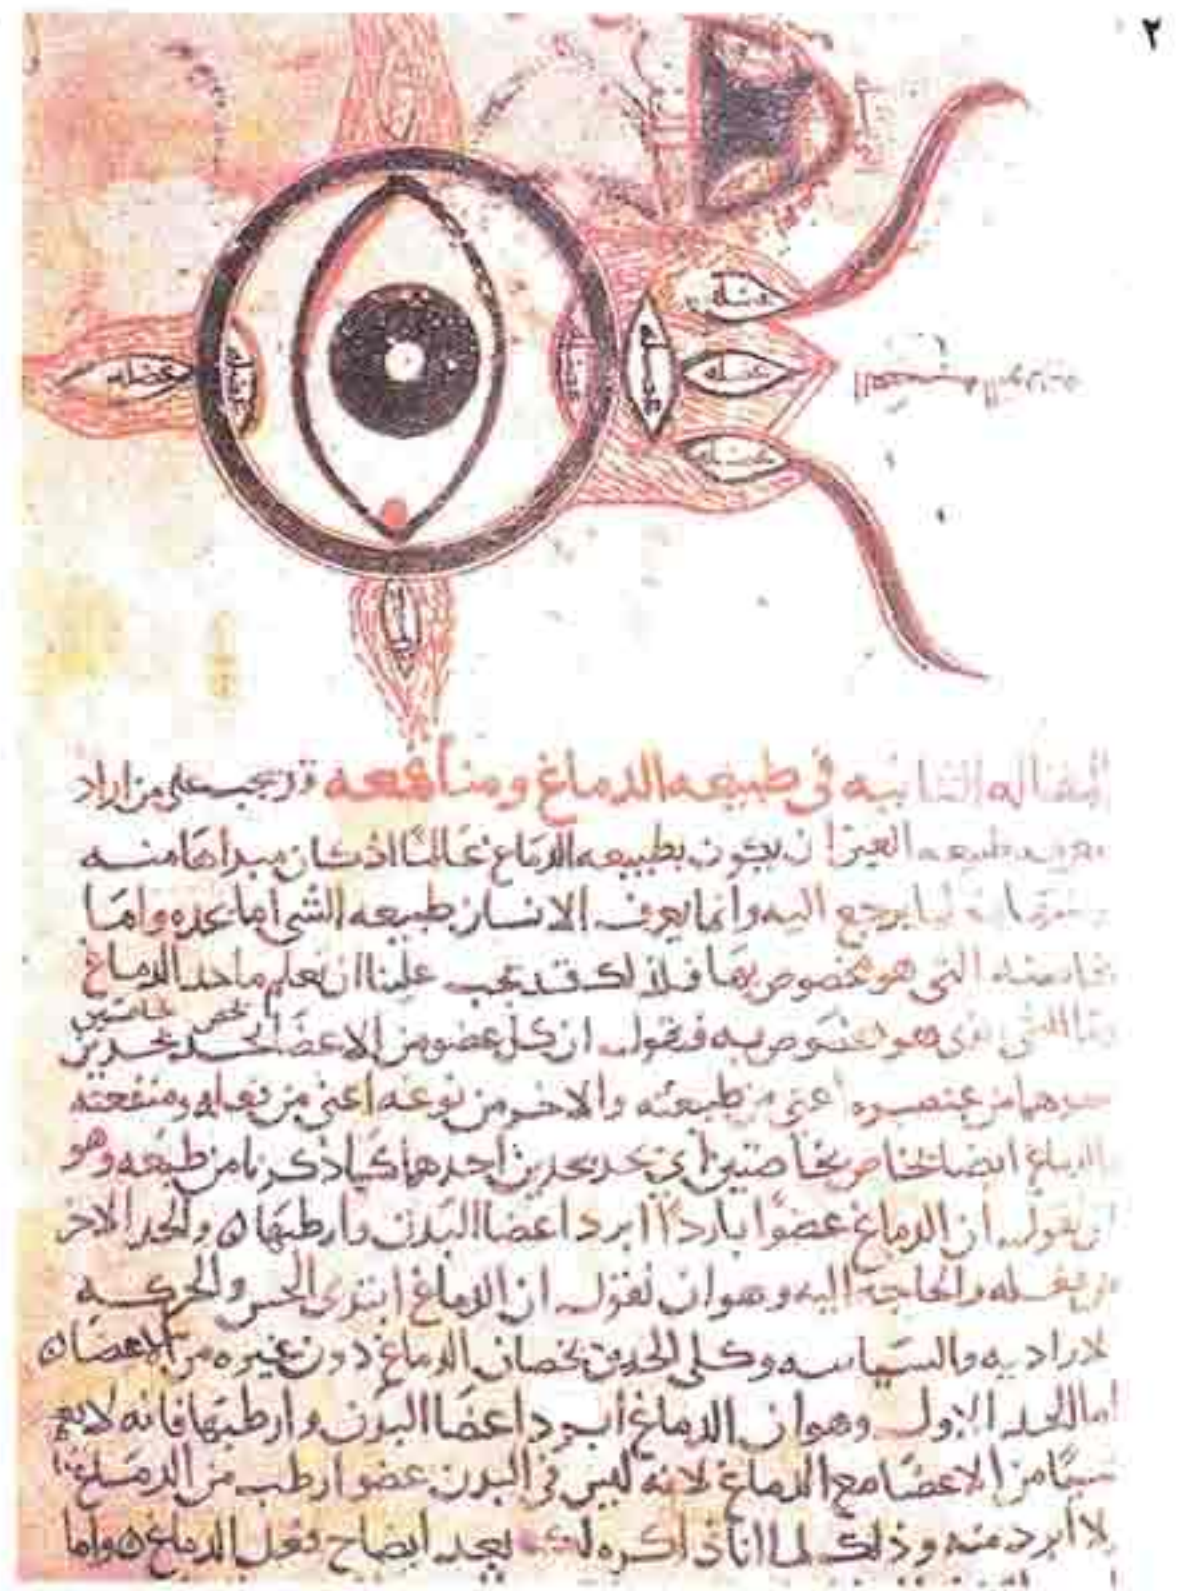 ٢
عضله
عضله
عضله
عضله
عضله
عضله
عضله
المقاله الثانيه في طبيعه الدماغ ومنافعه قد يجب على من اراد
طبيعه العين ان يكون بطبيعه الدماغ عالمًا اذ كان مبداها منه
يرجع اليه وانما يعرف الانسان طبيعه الشي اما بحده واما
بخاصته التي هو مخصوص بها فلذلك قد يجب علينا ان نعلم ما حد الدماغ
وما الشي الذي هو مخصوص به فنقول ان كل عضو من الاعضا يحد بحدين
يخص بخاصتين
احدهما من عنصره اعني من طبيعته والاخر من نوعه اعني من فعله ومنفعته
والدماغ ايضا يخاص بخاصتين اي يحد بحدين احدهما كما ذكرنا من طبعه وهو
ان نقول ان الدماغ عضوًا باردًا ابرد اعضا البدن وارطبها ه والحد الاخر
من فعله والحاجة اليه وهو ان نقول ان الدماغ ابتدى الحس والحركه
الاراديه والسياسه وكلى الحدين يخصان الدماغ دون غيره من الاعضا ه
اما الحد الاول وهو ان الدماغ ابرد اعضا البدن وارطبها فانه لا يعم
شيئًا من الاعضا مع الدماغ لانه ليس في البدن عضو ارطب من الدماغ
لا ابرد منه وذلك لما انا ذاكره لك بعد ايضاح فعل الدماغ ه واما